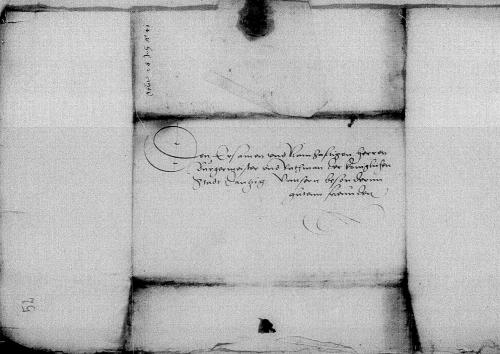 Den Ersamen und Namhafftigen Herren
Burgermeister und Rathman der Königlichen
Stadt Dantzig Unsern besonderen
gutenn freunden
52